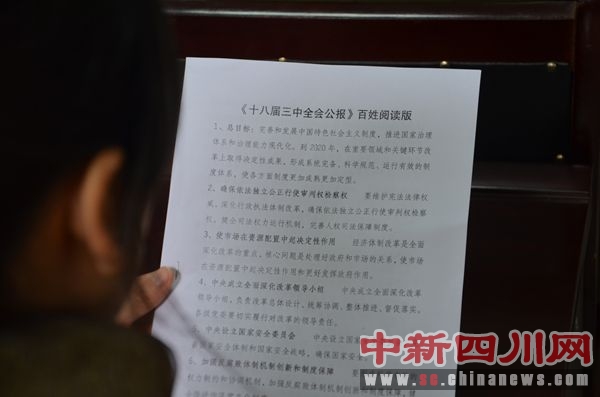 《十八届三中全会公报》百姓阅读版
1、总目标：完善和发展中国特色社会主义制度，推进国家治理
体系和治理能力现代化。到2020年，在重要领域和关键环节改
革上取得决定性成果，形成系统完备、科学规范、运行有效的制
度体系，使各方面制度更加成熟更加定型。
2、确保依法独立公正行使审判权检察权 要维护宪法法律权
威，深化行政执法体制改革，确保依法独立公正行使审判权检察
权，健全司法权力运行机制，完善人权司法保障制度。
3、使市场在资源配置中起决定性作用 经济体制改革是全面
深化改革的重点，核心问题是处理好政府和市场的关系，使市场
在资源配置中起决定性作用和更好发挥政府作用。
4、中央成立全面深化改革领导小组 中央成立全面深化改革
领导小组，负责改革总体设计、统筹协调、整体推进、督促落实。
各级党委要切实履行对改革的领导责任。
5、中央设立国家安全委员会 中央设立国家
善国家安全体制和国家安全战略，确保国家安
6、加强反腐败体制机制创新和制度保障
权力制约和协调机制，加强反腐败体制机制创新和制度保
中新四川网
www.sc.chinanews.com